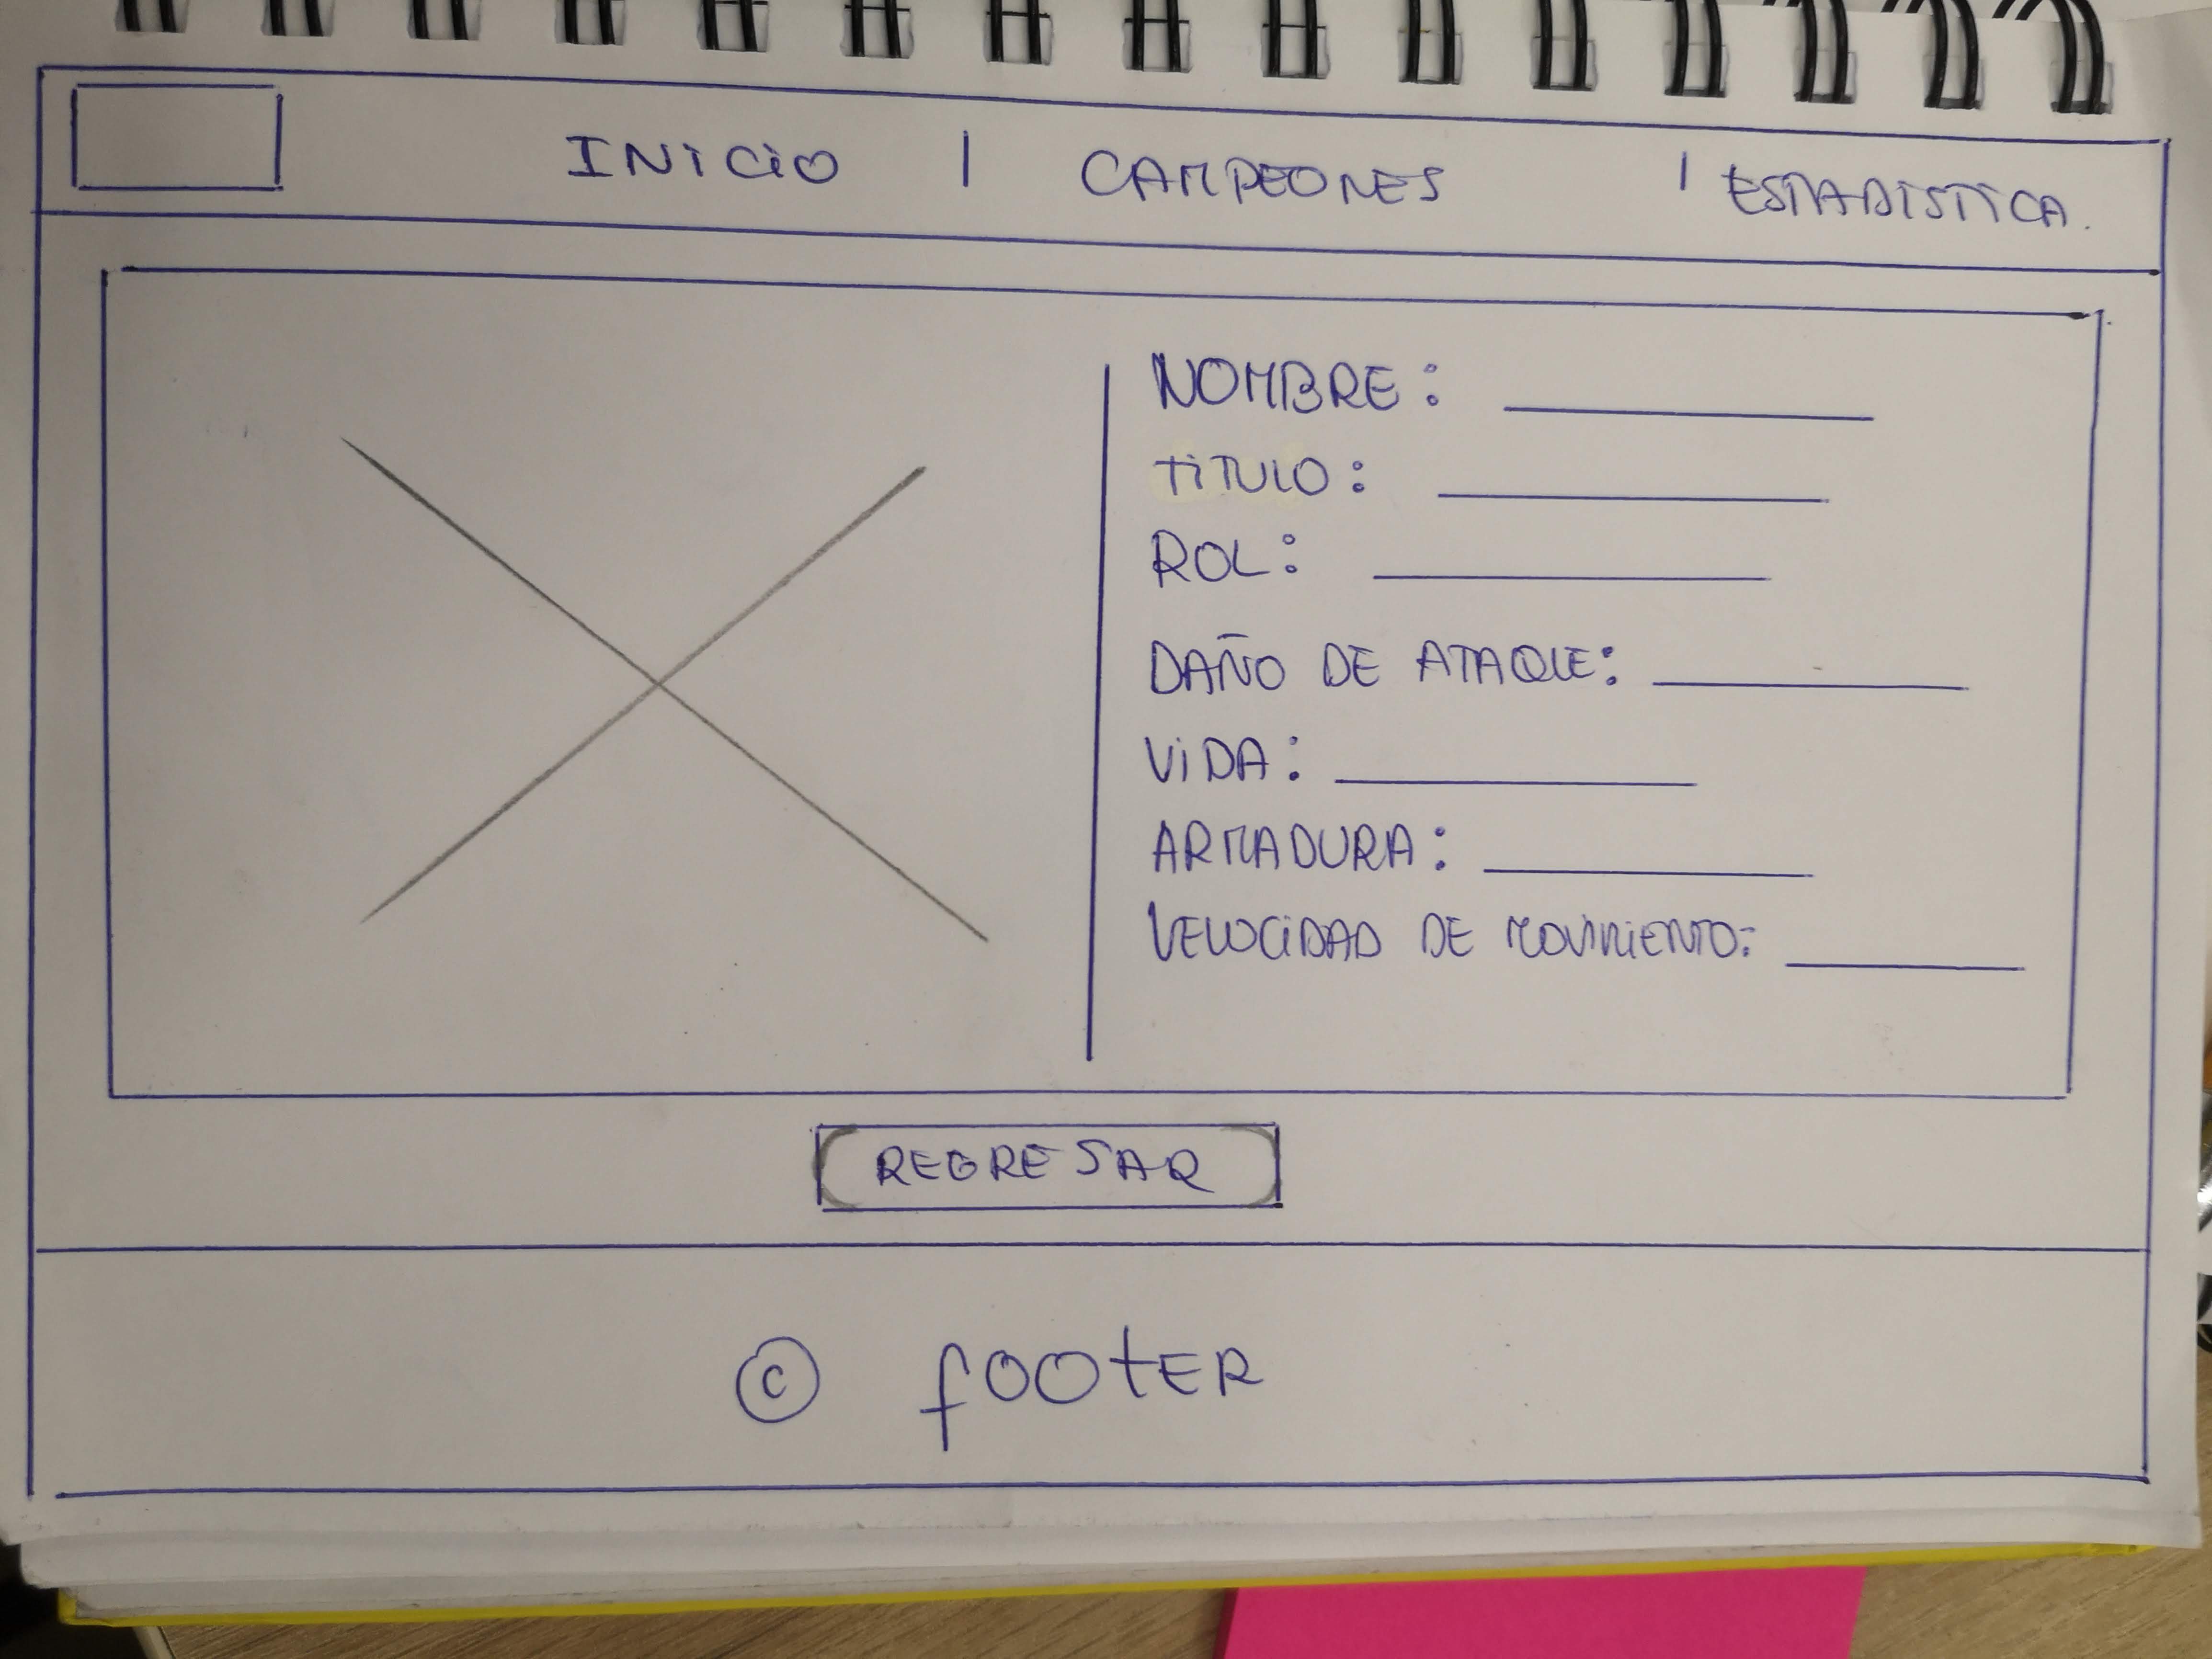 INICIO | CAMPEONES | ESTADISTICA.
NOMBRE: ____________
TITULO: ____________
ROL: ____________
DAÑO DE ATAQUE: ____________
VIDA: ____________
ARMADURA: ____________
VELOCIDAD DE MOVIMIENTO: ________
REGRESAR
© footER